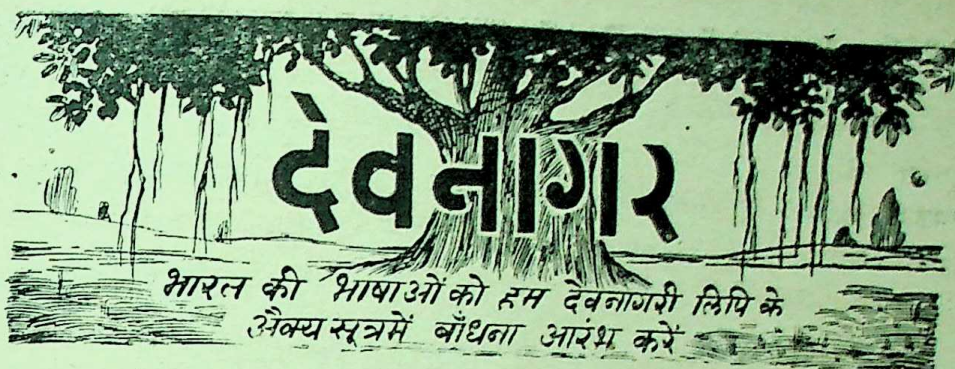 देवनागर
भारत की भाषाओं को हम देवनागरी लिपि के
अैक्य सूत्रमें बाँधना आरंभ करें